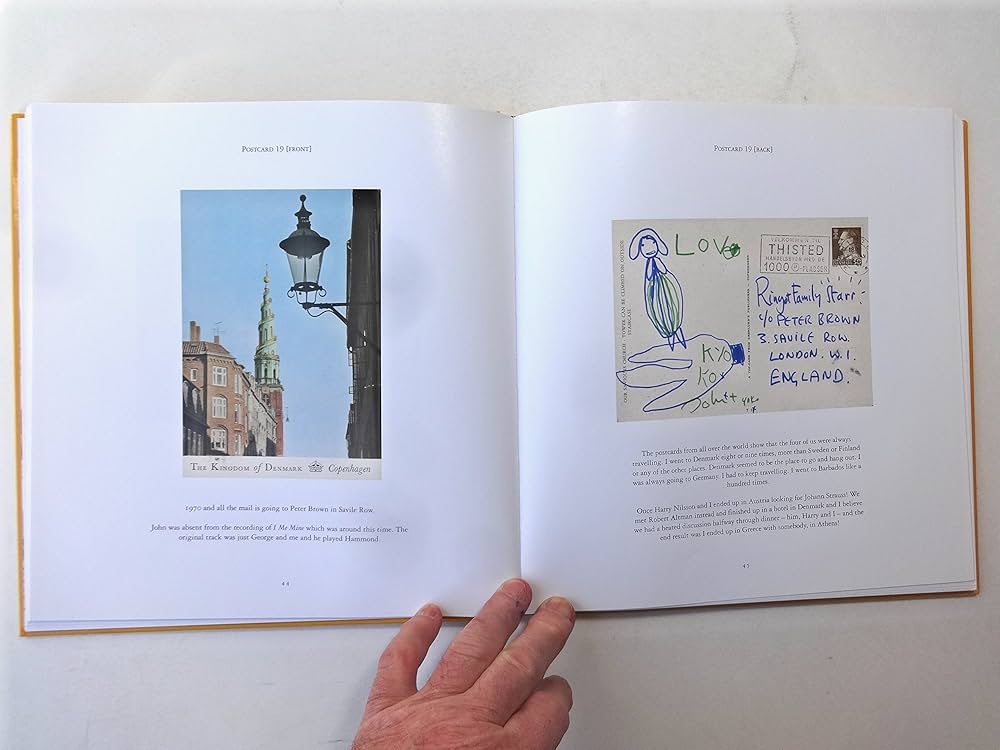 POSTCARD 19 [FRONT]
THE KINGDOM of DENMARK Copenhagen
1970 and all the mail is going to Peter Brown in Savile Row.
John was absent from the recording of I Me Mine which was around this time. The
original track was just George and me and he played Hammond.
44
POSTCARD 19 [BACK]
LOVE
KYO
KO+
John + yoko
TOWER CAN BE CLIMBED ON OUTSIDE
STAIRCASE
VELKOMMEN TIL
THISTED
HANDELSBYEN MED DE
1000 P-PLADSER
Ringo + Family Starr
c/o PETER BROWN
3. SAVILE ROW.
LONDON. W.1.
ENGLAND.
The postcards from all over the world show that the four of us were always
travelling. I went to Denmark eight or nine times, more than Sweden or Finland
or any of the other places. Denmark seemed to be the place to go and hang out. I
was always going to Germany. I had to keep travelling. I went to Barbados like a
hundred times.
Once Harry Nilsson and I ended up in Austria looking for Johann Strauss! We
met Robert Altman instead and finished up in a hotel in Denmark and I believe
we had a heated discussion halfway through dinner – him, Harry and I – and the
end result was I ended up in Greece with somebody, in Athens!
45